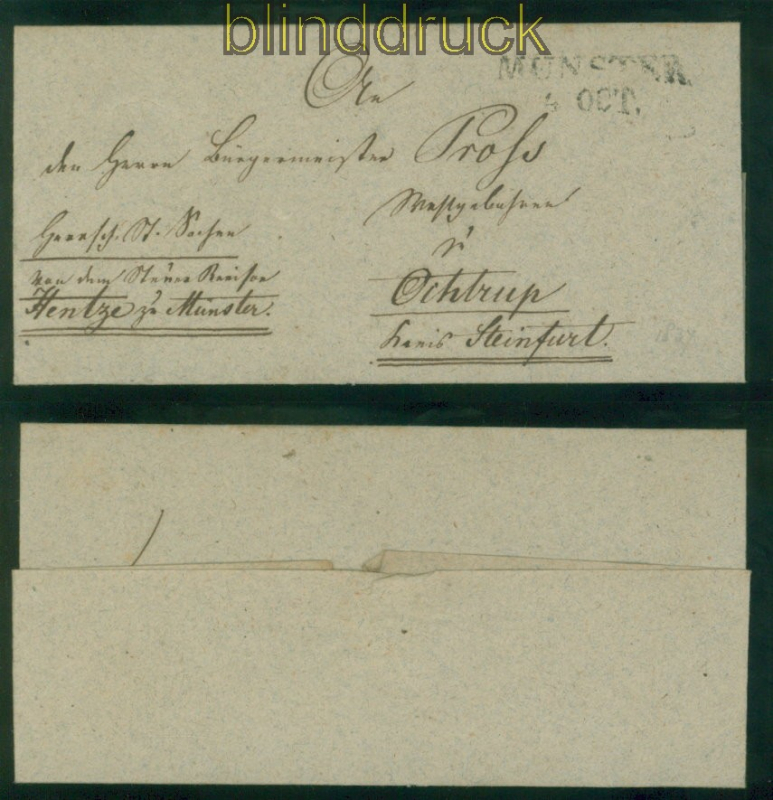 blinddruck
MÜNSTER
4 OCT.
An
den Herrn Bürgermeister Pross
zu
Herrsch. St. Sachen
von dem Steuer Revisor
Hentze zu Münster.
Ochtrup
Kreis Steinfurt.
1837